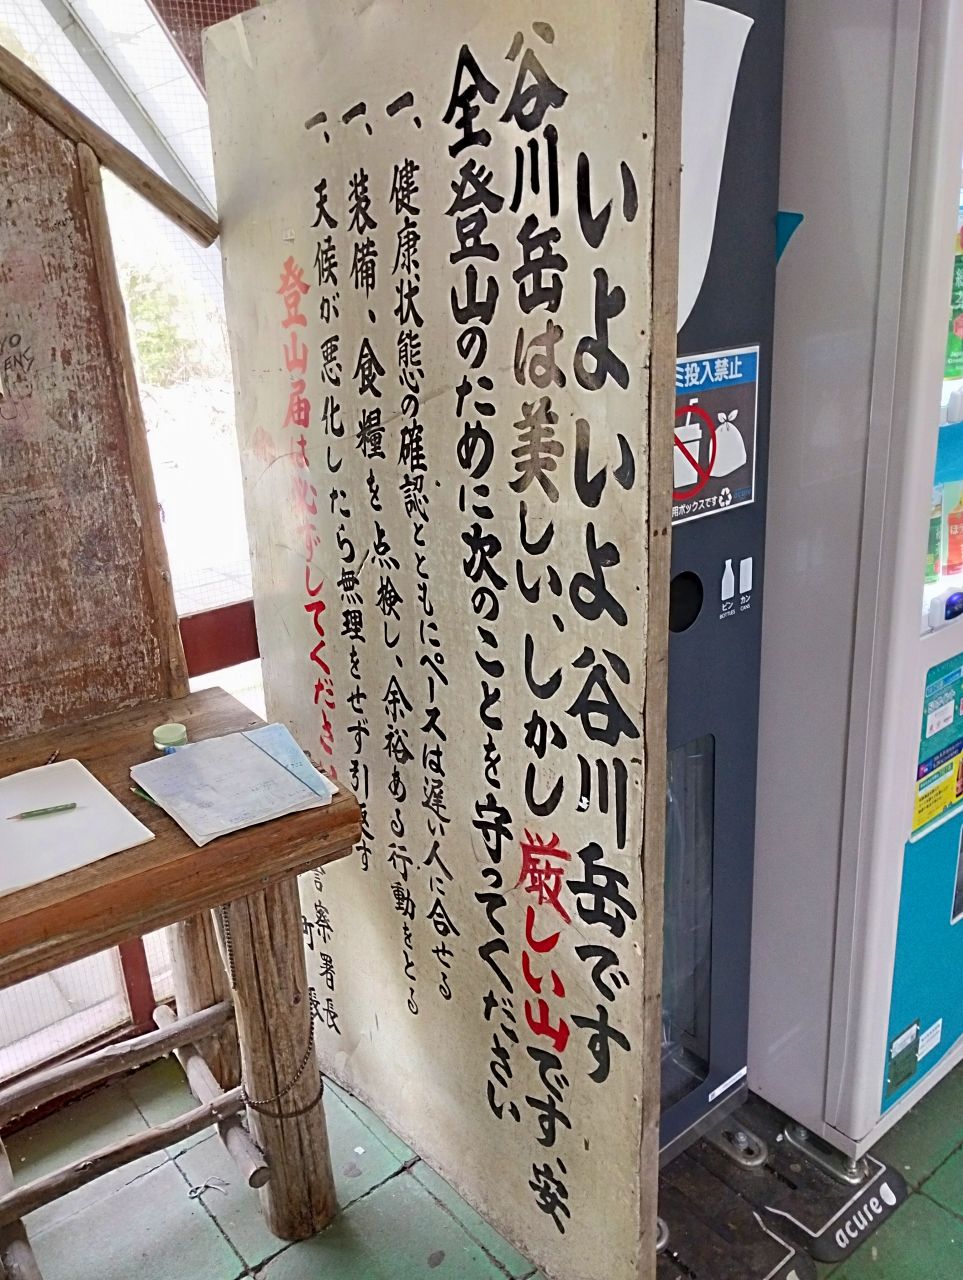 いよいよ谷川岳です
谷川岳は美しい、しかし厳しい山です、安
全登山のために次のことを守ってください
一、健康状態の確認とともにペースは遅い人に合せる
一、装備、食糧を点検し、余裕ある行動をとる
一、天候が悪化したら無理をせず引返す
登山届は必ずしてください
警察署長
町長
ミ投入禁止
用ボックスです
ビン
BOTTLES
カン
CANS
acure